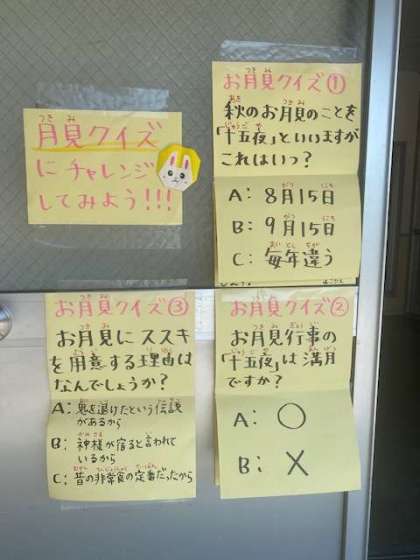 月見クイズ
にチャレンジ
してみよう!!!
お月見クイズ①
秋のお月見のことを
「十五夜」といいますが
これはいつ?
A: 8月15日
B: 9月15日
C: 毎年違う
お月見クイズ②
お月見行事の
「十五夜」は満月
ですか?
A: ○
B: ×
お月見クイズ③
お月見にススキ
を用意する理由は
なんでしょうか?
A: 鬼を退けたという伝説
があるから
B: 神様が宿ると言われて
いるから
C: 昔の非常食の定番だったから